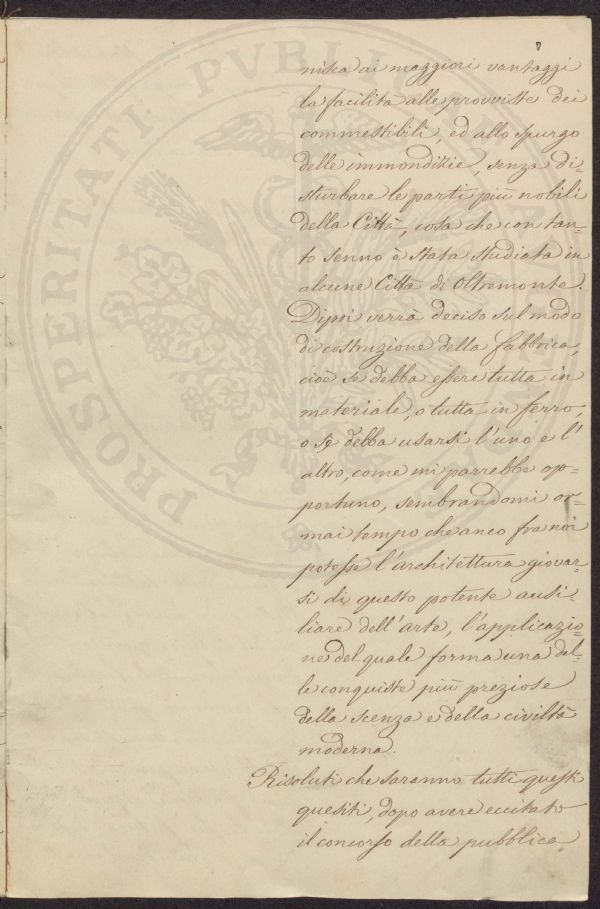 7
PROSPERITATI PVBLI
nisca ai maggiori vantaggi
la facilità alle provviste dei
commestibili, ed allo spurgo
delle immondizie, senza di=
sturbare le parti più nobili
della Città, cosa che con tan=
to senno è stata studiata in
alcune Città di Oltremonte.
Dipoi verrà deciso sul modo
di costruzione della fabbrica,
cioè se debba essere tutta in
materiale, o tutta in ferro,
o se debba usarsi l'uno e l'
altro, come mi parrebbe op=
portuno, sembrandomi or=
mai tempo che anco fra noi
potesse l'architettura giovar=
si di questo potente ausi=
liare dell'arte, l'applicazio=
ne del quale forma una del=
le conquiste più preziose
della scenza e della civiltà
moderna.
Risoluti che saranno tutti questi
quesiti, dopo avere eccitato
il concorso della pubblica